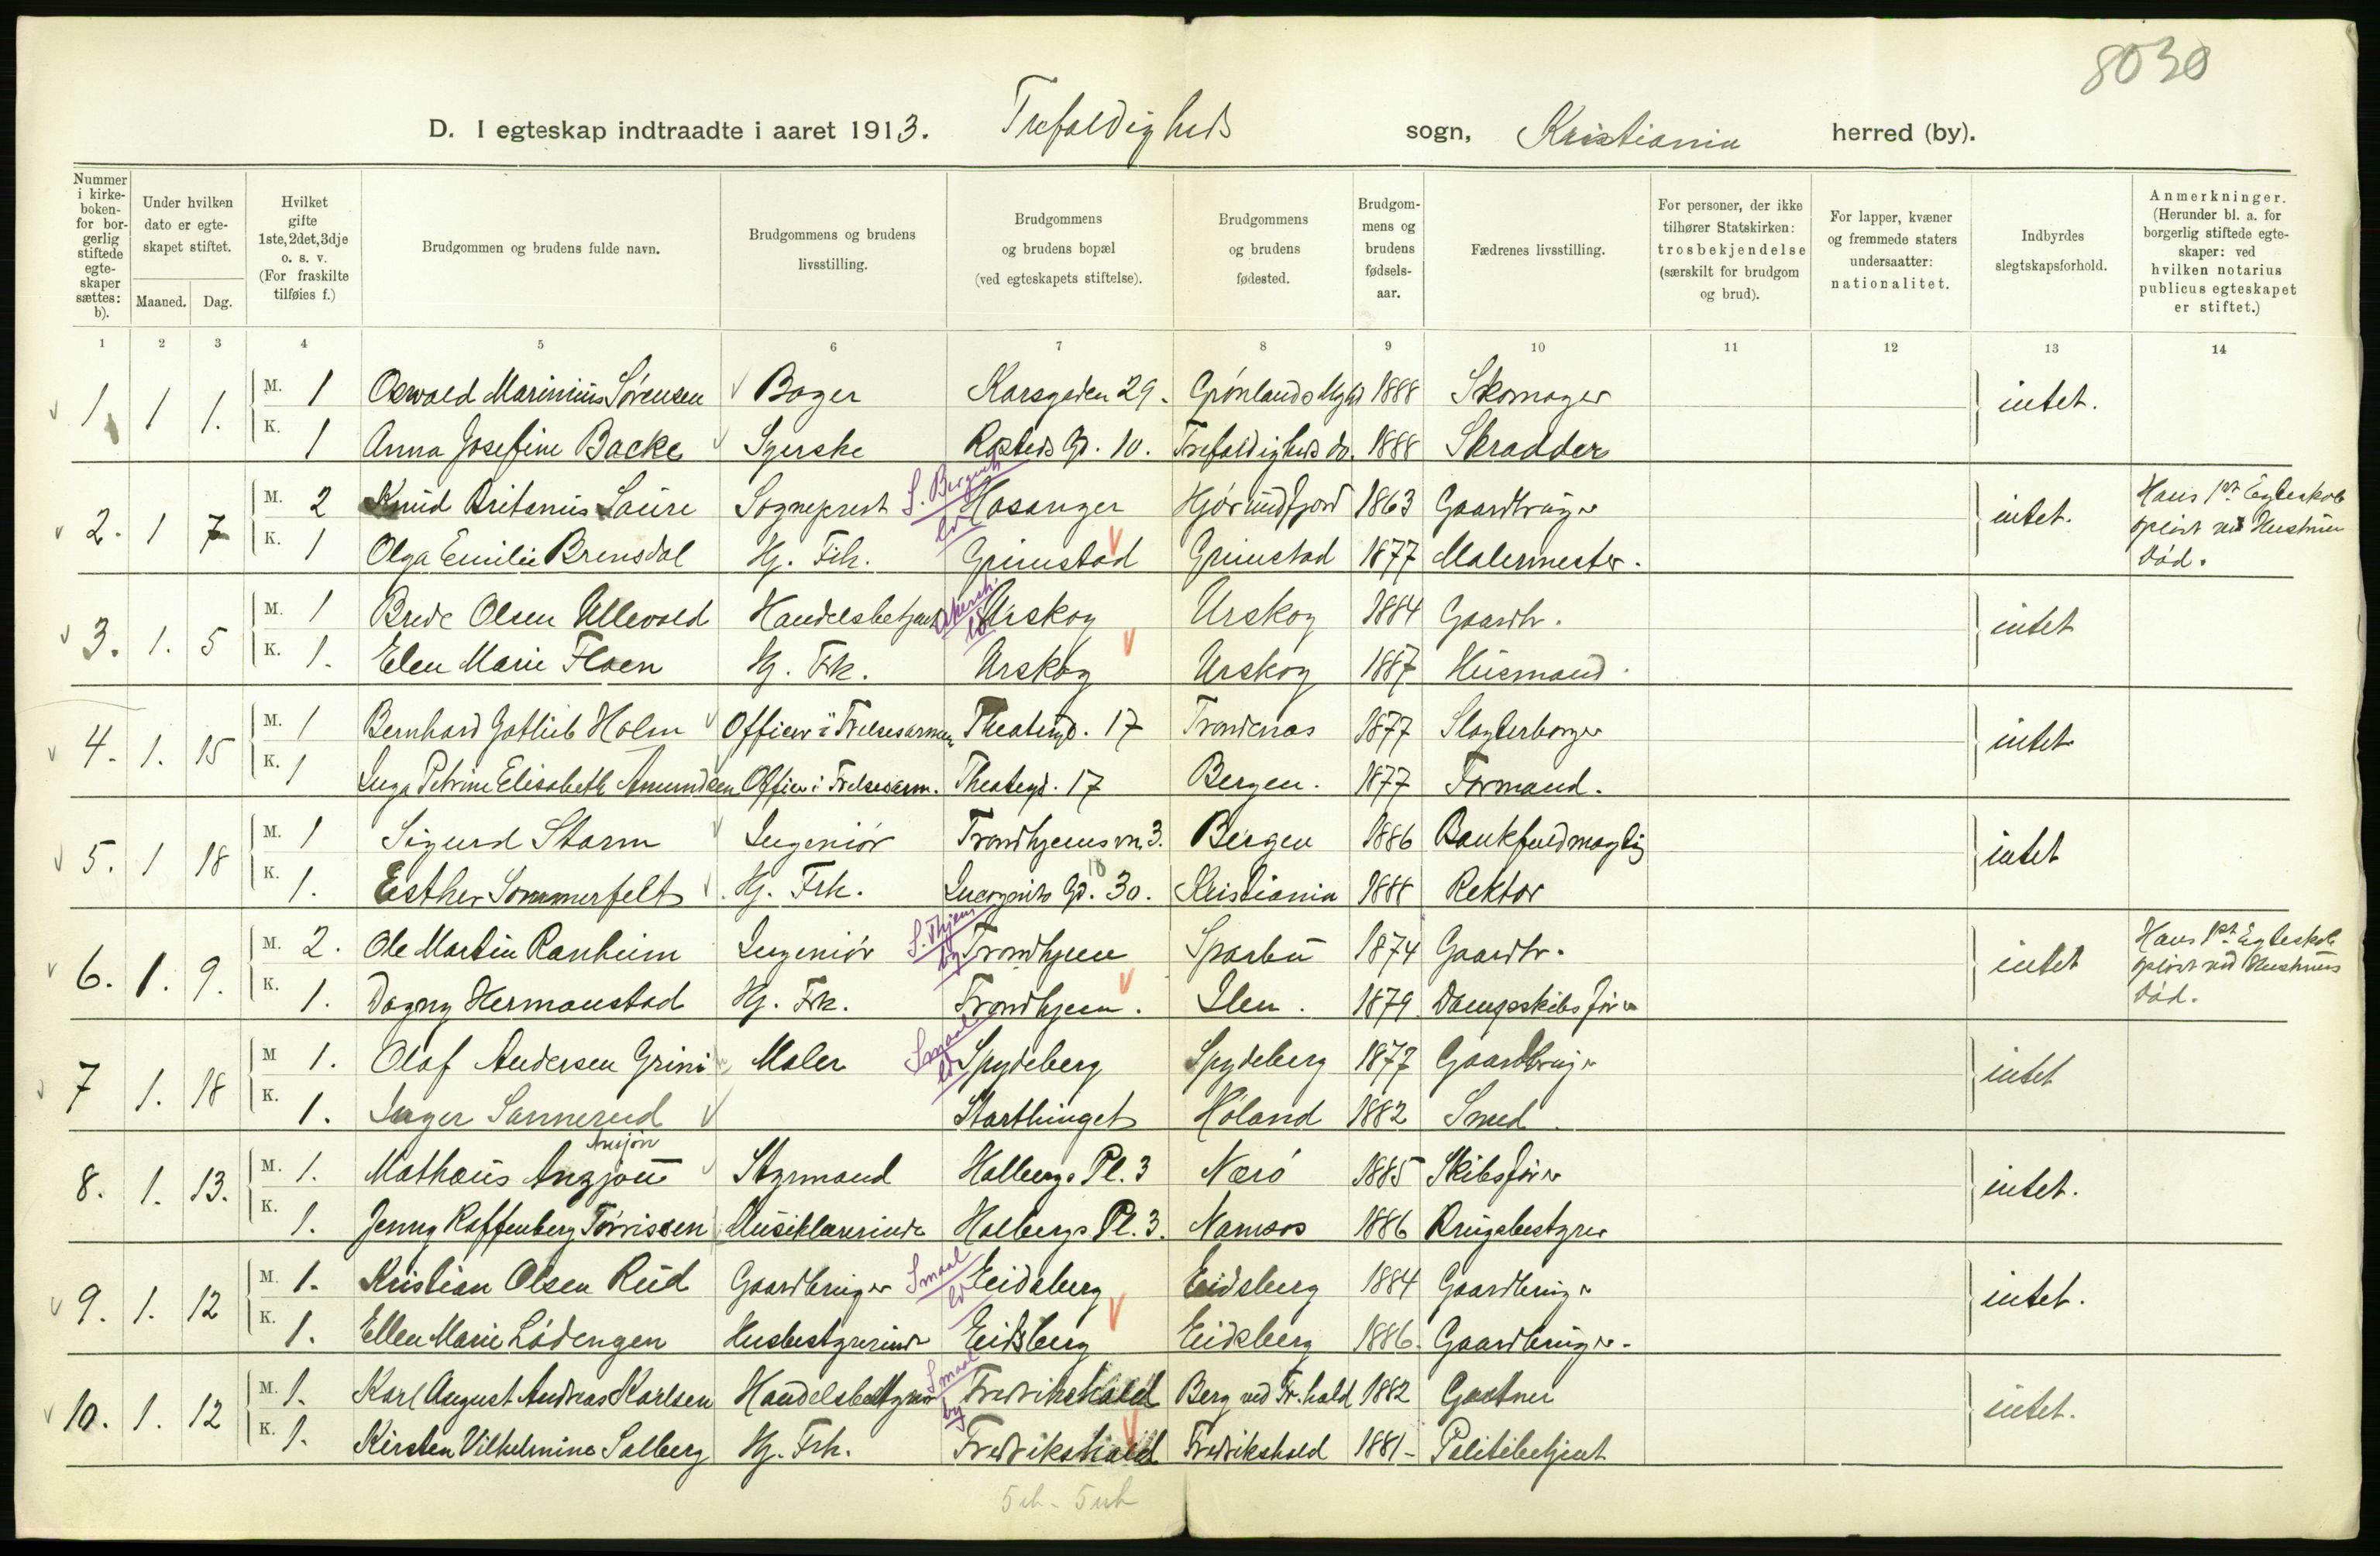 8030
D. I egteskap indtraadte i aaret 1913. Trefoldigheds sogn, Kristiania herred (by).
Nummer i kirkeboken- for borgerlig stiftede egteskaper sættes: b).
Under hvilken dato er egteskapet stiftet.
Maaned. Dag.
Hvilket gifte 1ste, 2det, 3dje o. s. v. (For fraskilte tilføies f.)
Brudgommen og brudens fulde navn.
Brudgommens og brudens livsstilling.
Brudgommens og brudens bopæl (ved egteskapets stiftelse).
Brudgommens og brudens fødested.
Brudgommens og brudens fødselsaar.
Fædrenes livsstilling.
For personer, der ikke tilhører Statskirken: trosbekjendelse (særskilt for brudgom og brud).
For lapper, kvæner og fremmede staters undersaatter: nationalitet.
Indbyrdes slegtskapsforhold.
Anmerkninger. (Herunder bl. a. for borgerlig stiftede egteskaper: ved hvilken notarius publicus egteskapet er stiftet.)
1 2 3 4 5 6 7 8 9 10 11 12 13 14
1 1 1. M. 1 Oswald Marinius Sørensen Bager Karsgaden 29. Grønlands Mgh 1888 Skomager intet.
K. 1 Anna Josefine Backe Syerske Rosteds Gd. 10. Trefoldigheds do. 1888 Skrædder
2. 1 7 M. 2 Knud Britanius Saure Sogneprest S. Bergenh ld Hosanger Hjørundfjord 1863 Gaardbruger intet. Hans 1st Egteskab opløst ved Hustrues Død.
K. 1 Olga Emilie Brensdal Hj. Frk. Grimstad Grimstad 1877 Malermester.
3. 1. 5 M. 1 Brede Olsen Ullevold Handelsbetjent Akersh ld Urskog Urskog 1884 Gaardbr. intet
K. 1. Elen Marie Floen Hj. Frk. Urskog Urskog 1887 Husmand.
4. 1. 15 M. 1 Bernhard Gotlieb Holm Officer i Frelsesarmeen Theatergd. 17 Trondenæs 1877 Slagterborger intet
K. 1 Inga Petrine Elisabeth Amundsen Officer i Frelsesarm. Theatergd. 17 Bergen. 1877 Formand.
5. 1 18 M. 1 Sigurd Storm Ingeniør Trondhjemsvn. 3. Bergen 1886 Bankfuldmægtig intet
K. 1. Esther Sommerfelt Hj. Frk. Gd. 30. Kristiania 1888 Rektor
6. 1. 9. M. 2. Ole Martin Ranheim Ingeniør S. Thjem by Trondhjem Sparbu 1874 Gaardbr. intet Hans 1st Egteskab opløst ved Hustrues Død.
K. 1. Dagny Hermanstad Hj. Frk. Trondhjem. Ilen. 1879. Dampskibsfører
7 1. 18 M 1. Olaf Andersen Grini Maler Smaal ld Spydeberg Spydeberg 1877 Gaardbruger intet
K. 1. Inger Sannerud Storthinget Høland 1882 Smed.
Ansjøn
8. 1. 13. M. 1. Mathæus Angjou Styrmand Holbergs Pl. 3 Nærø 1885 Skibsfører intet.
K. 1. Jenny Raffenberg Tørrissen Musiklærerinde Holbergs Pl. 3. Namsos 1886 Brugsbestyrer
9. 1. 12 M. 1. Kristian Olsen Rud Gaardbruger Smaal ld Eidsberg Eidsberg 1884 Gaardbruger intet.
K. 1. Ellen Marie Lødengen Husbestyrerinde Eidsberg Eidsberg 1886. Gaardbruger.
10. 1. 12 M. 1. Karl August Andreas Karlsen Handelsbestyrer Smaal by Fredrikshald Berg ved Fr.hald 1882 Gartner intet.
K. 1. Kirsten Vilhelmine Solberg Hj. Frk. Fredrikshald Fredrikshald 1881- Politibetjent